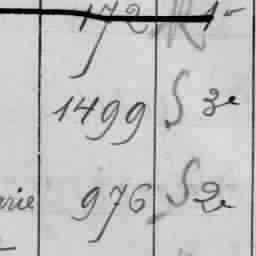 172 M 1e
1499 S 3e
rie 976 S 2e